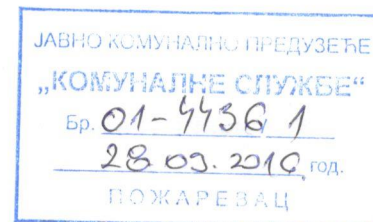 ЈАВНО КОМУНАЛНО ПРЕДУЗЕЋЕ
„КОМУНАЛНЕ СЛУЖБЕ“
Бр. 01-4436/1
28 09. 2016 год.
ПОЖАРЕВАЦ